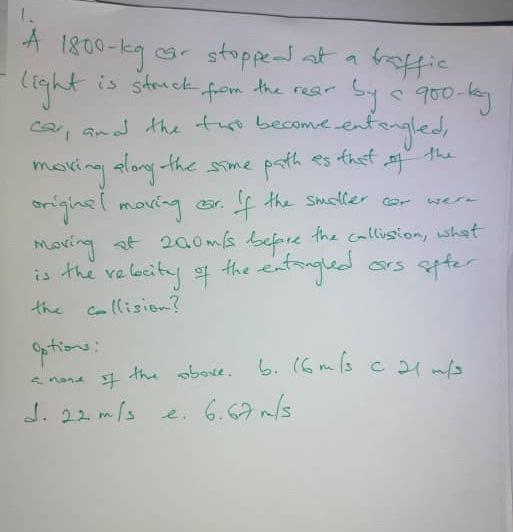 1.
A 1800-kg car stopped at a traffic
light is struck from the rear by a 900-kg
car, and the two become entangled,
moving along the same path as that of the
original moving car. If the smaller car were
moving at 20.0m/s before the collusion, what
is the velocity of the entangled cars after
the collision?
Options:
a none of the above. b. 16 m/s c 21 m/s
d. 22 m/s e. 6.67 m/s